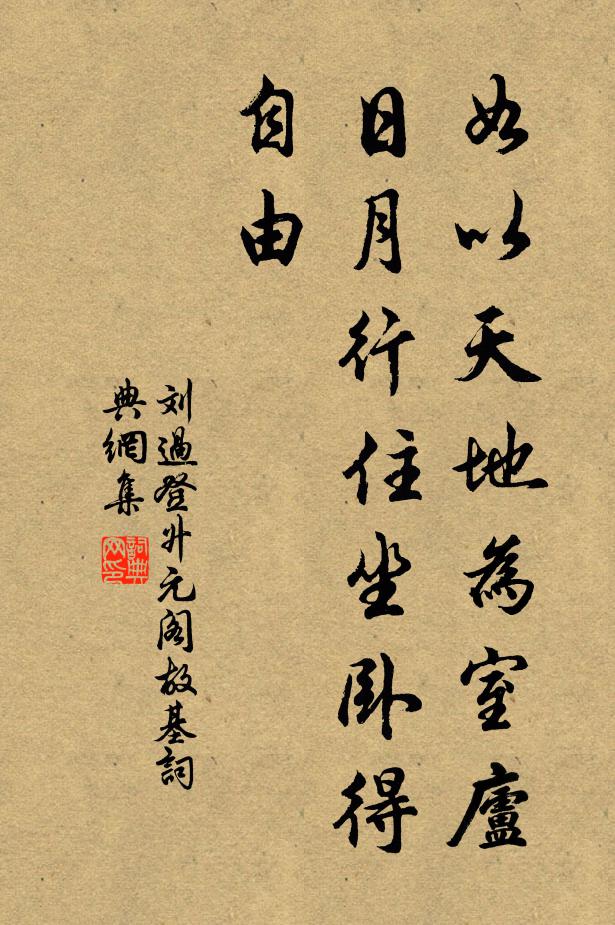 如以天地為室廬
日月行住坐卧得
自由
刘過登升元阁故基詞
典網集
詞典
网印